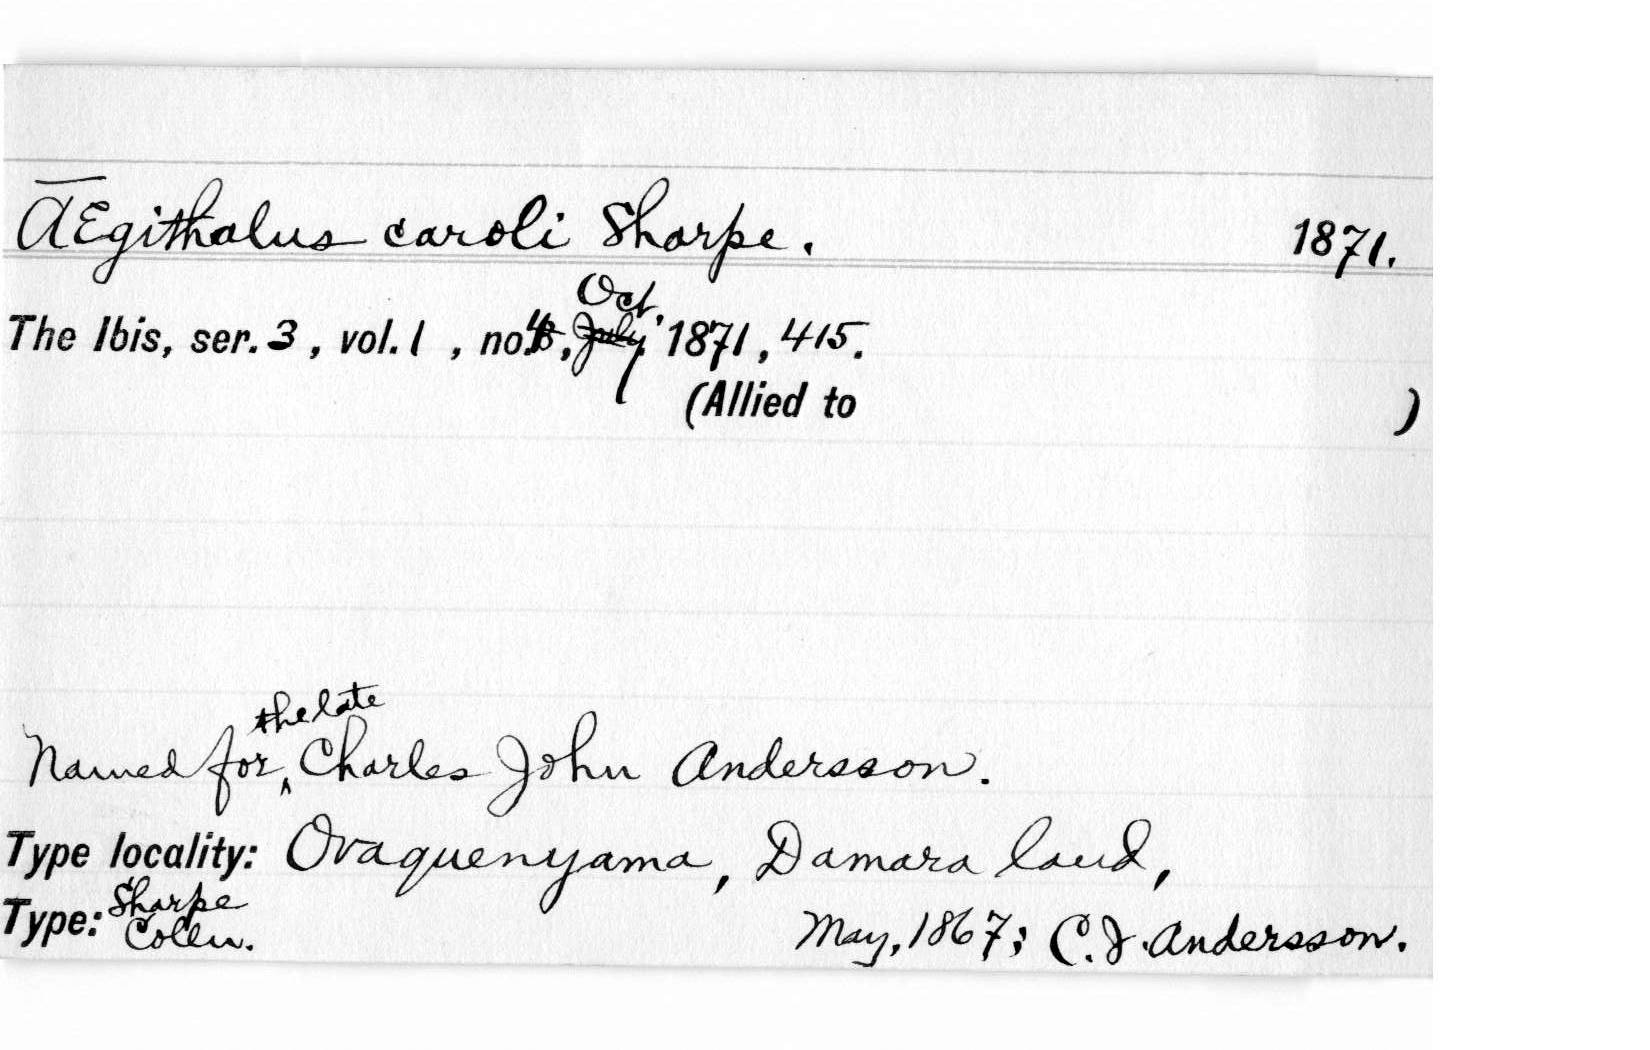 Ægithalus caroli Sharpe. 1871.
Oct.
The Ibis, ser. 3, vol. 1, no. 4, July 1871, 415.
(Allied to )
the late
Named for Charles John Andersson.
Type locality: Ovaquenyama, Damara land,
Type: Sharpe Colln. May, 1867; C. J. Andersson.